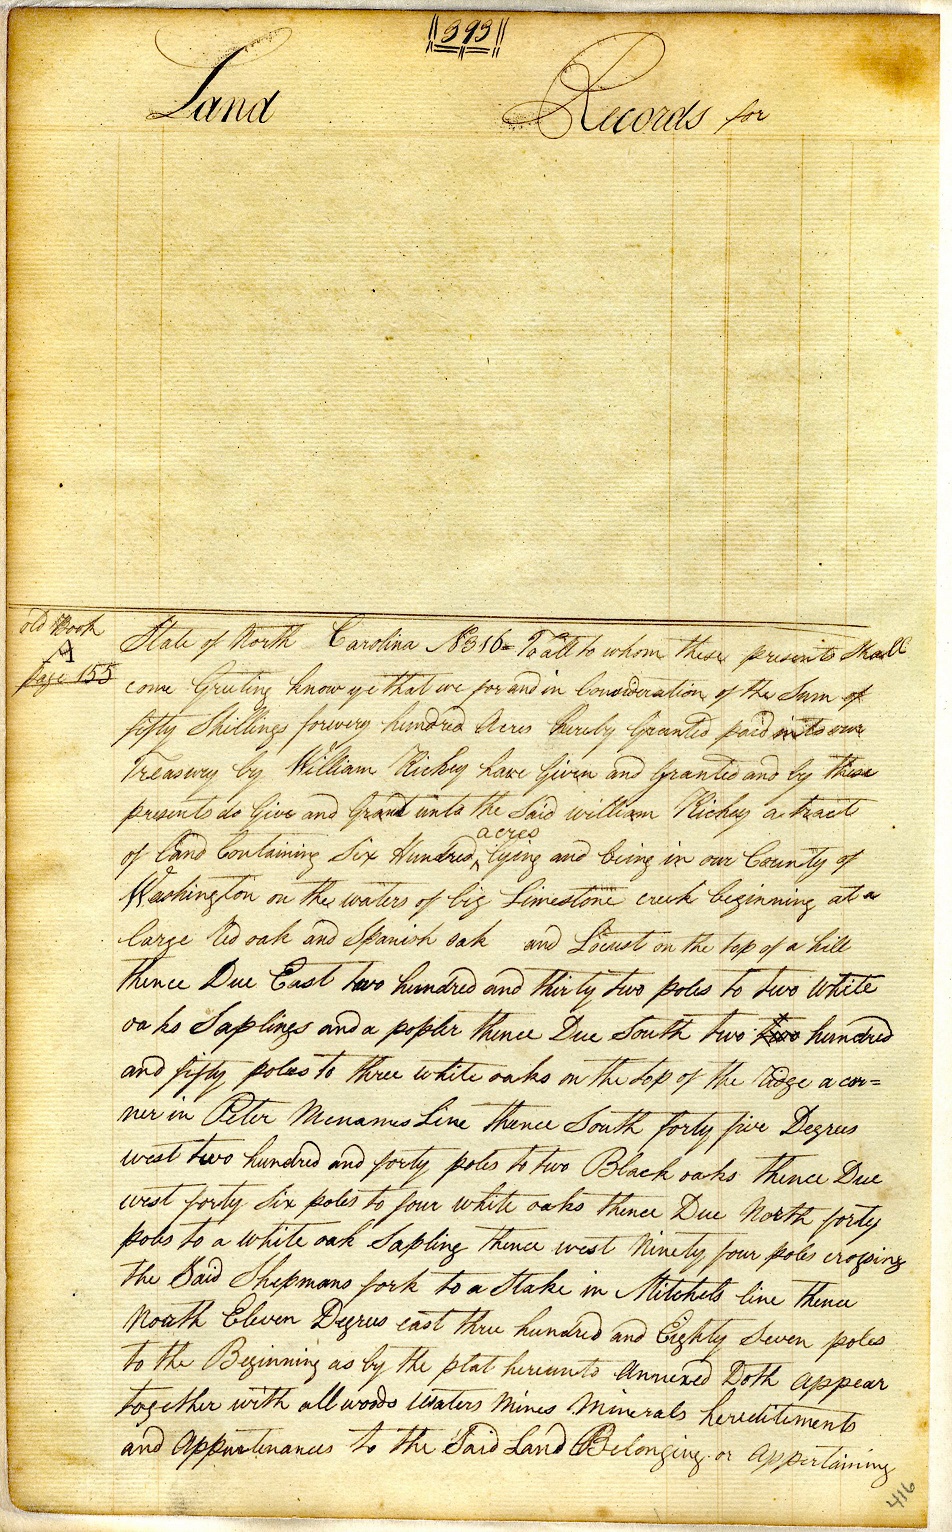 393
Land Records for
old Book
A
Page 155
State of North Carolina No 316 = To all to whom these presents Shall
come Greeting know ye that we for and in Consideration of the Sum of
fifty Shillings for every hundred Acres hereby Granted paid into our
Treasury by William Richey have Given and Granted and by these
presents do Give and Grant unto the Said william Richey a tract
acres
of Land Containing Six Hundred lying and being in our County of
Washington on the waters of big Limestone creek beginning at a
large Red oak and Spanish oak and Locust on the top of a hill
thence Due East two hundred and thirty two poles to two White
oaks Saplings and a popler thence Due South two two hundred
and fifty poles to three white oaks on the top of the Ridge a cor=
ner in Peter Mcnames Line thence South forty five Degrees
west two hundred and forty poles to two Black oaks thence Due
west forty Six poles to four white oaks thence Due North forty
poles to a white oak Sapling thence west Ninety four poles crossing
the Said Shepmans fork to a Stake in Mitchels line thence
North Eleven Degrees east three hundred and Eighty Seven poles
to the Beginning as by the plat hereunto Annexed Doth Appear
together with all woods Waters Mines Minerals hereditiments
and Appurtenances to the Said Land Belonging or Appertaining
416